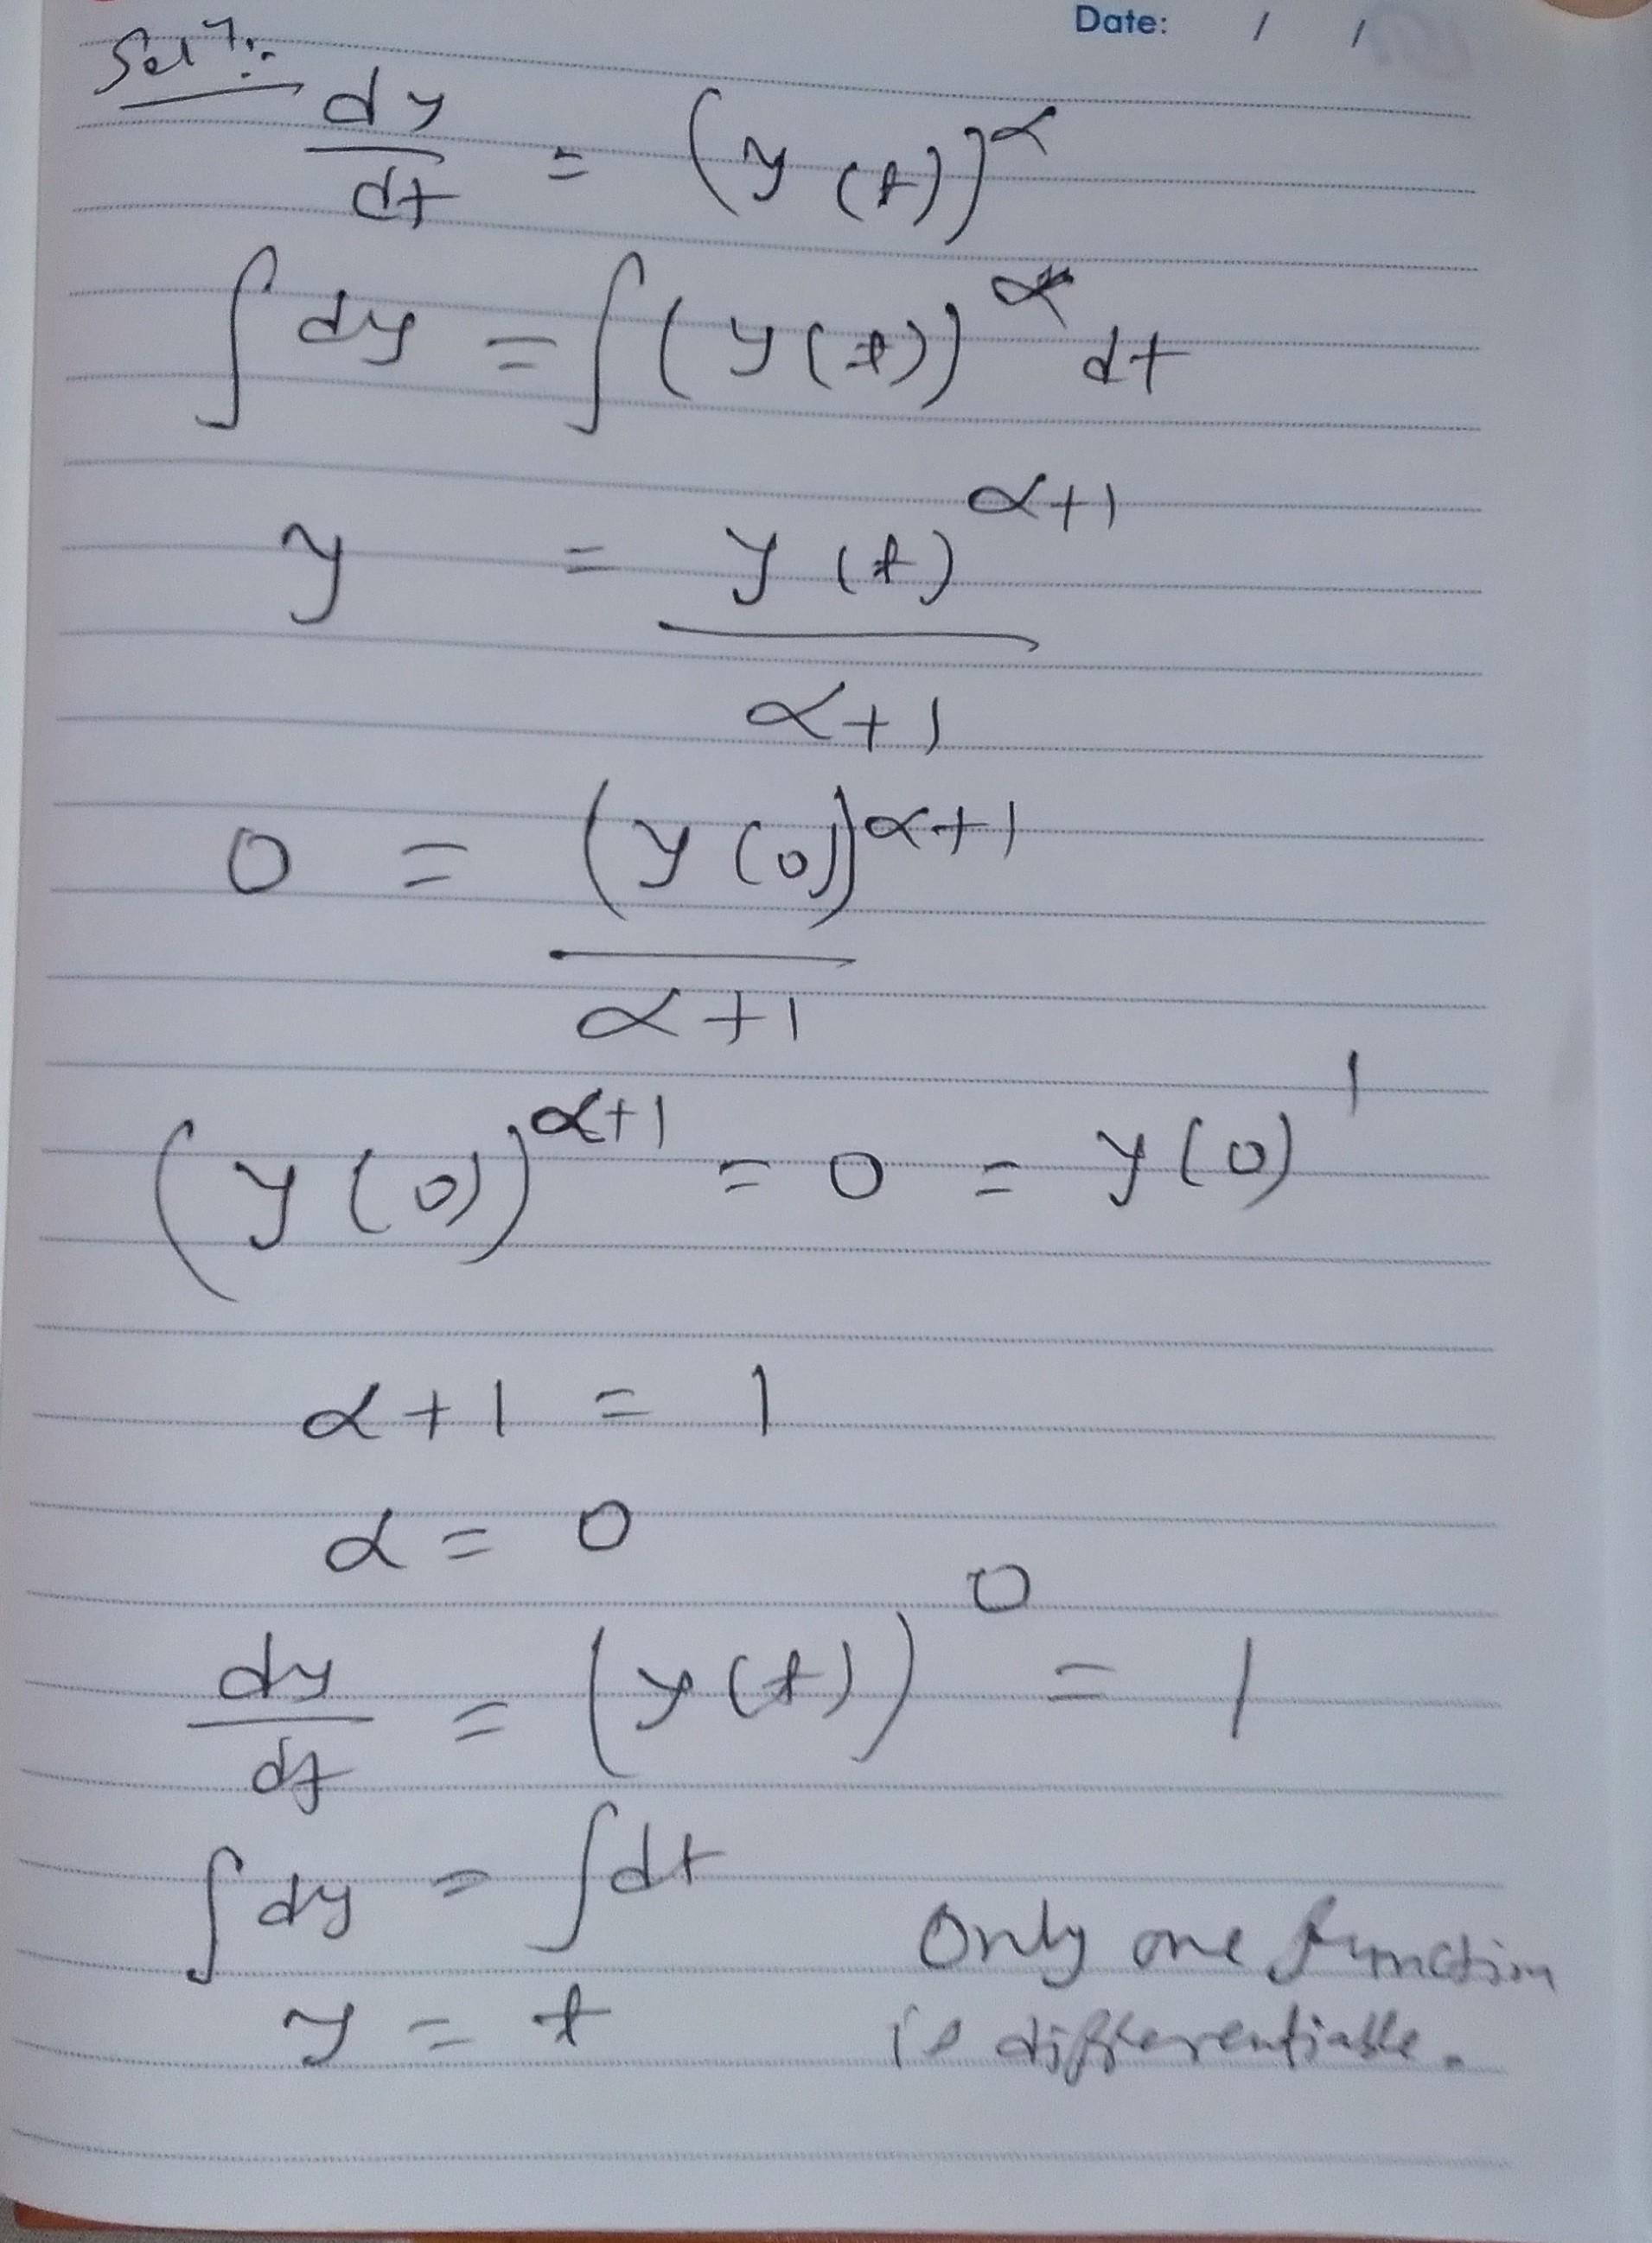 Date: / /
Solⁿ:-
dy/dt = (y(t))^α
∫dy = ∫(y(t))^α dt
y = y(t)^α+1 / α+1
0 = (y(0))^α+1 / α+1
(y(0))^α+1 = 0 = y(0)^1
α+1 = 1
α = 0
dy/dt = (y(t))^0 = 1
∫dy = ∫dt
y = t
Only one function
is differentiable.